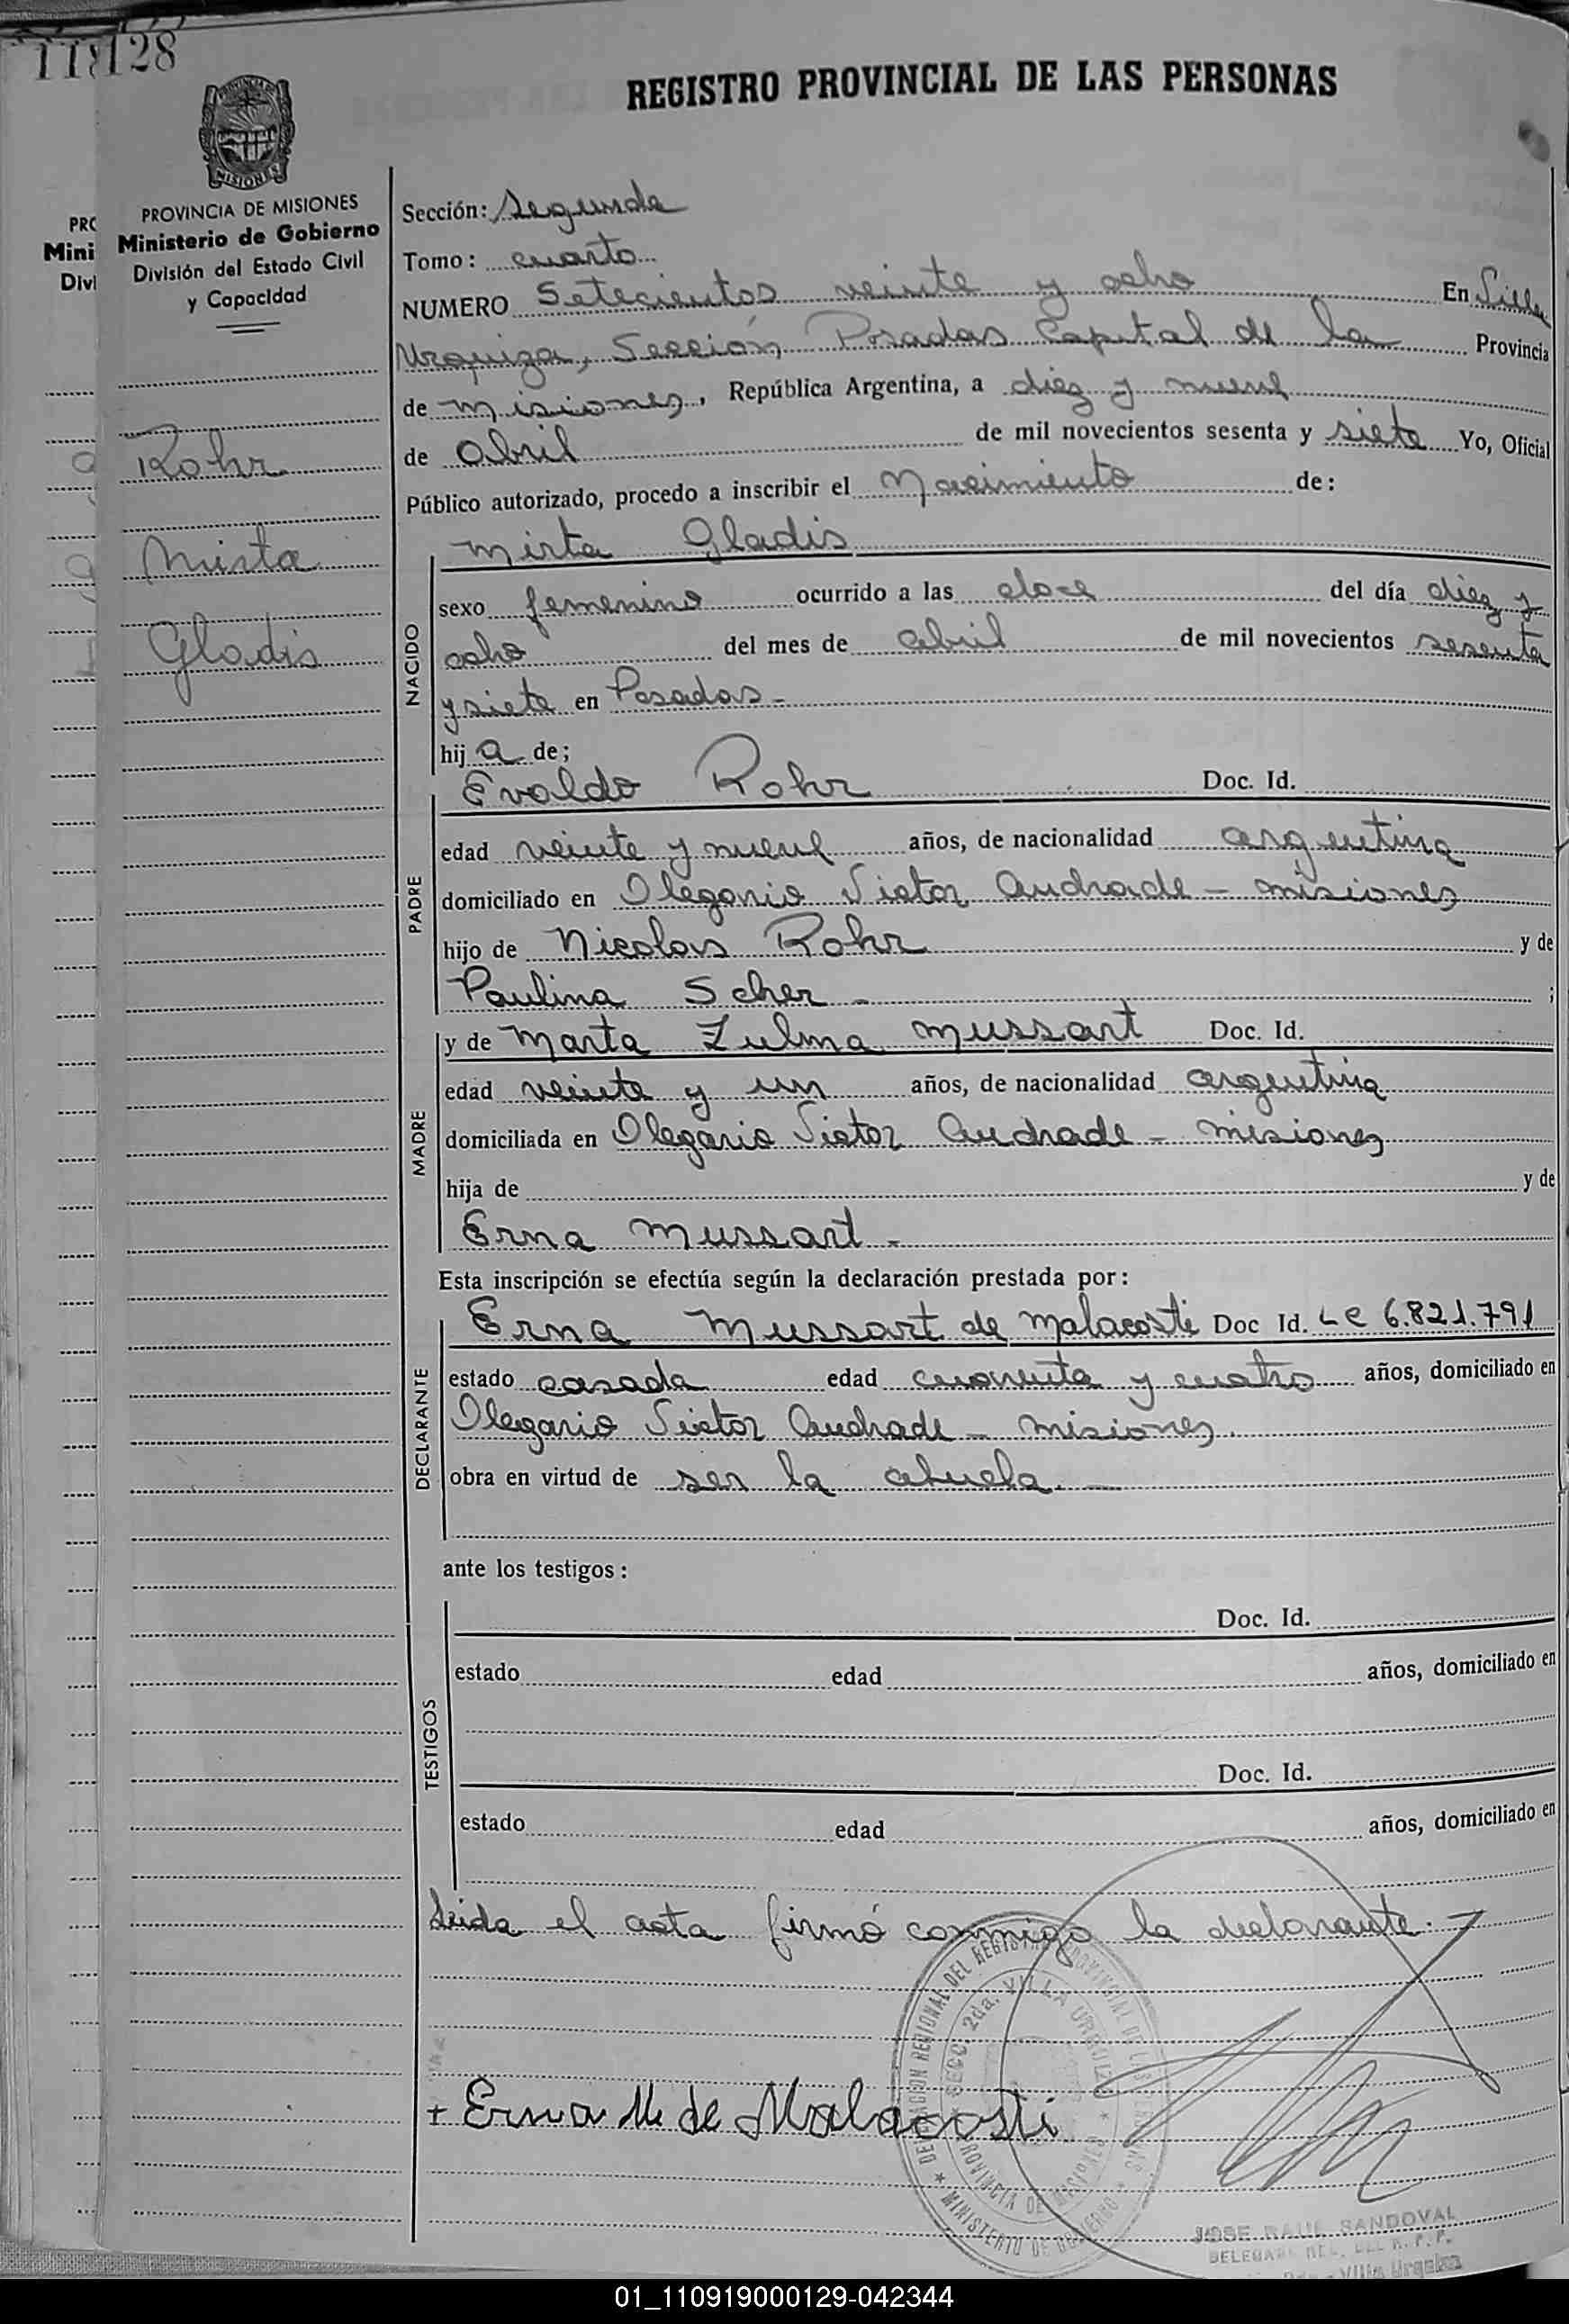 128
REGISTRO PROVINCIAL DE LAS PERSONAS
MISIONES
PROVINCIA DE MISIONES
Ministerio de Gobierno
División del Estado Civil
y Capacidad
Rohr
Mirta
Gladis
Sección: Segunda
Tomo: cuarto
NUMERO Setecientos veinte y ocho En Villa
Urquiza, Sección Posadas Capital de la Provincia
de misiones, República Argentina, a diez y nueve
de abril de mil novecientos sesenta y siete Yo, Oficial
Público autorizado, procedo a inscribir el Nacimiento de:
NACIDO
Mirta Gladis
sexo femenino ocurrido a las doce del día diez y
ocho del mes de abril de mil novecientos sesenta
y siete en Posadas -
hij a de;
PADRE
Evaldo Rohr Doc. Id.
edad veinte y nueve años, de nacionalidad argentina
domiciliado en Olegario Victor Andrade - misiones
hijo de Nicolas Rohr y de
Paulina Scher - ;
MADRE
y de Marta Zulma Mussart Doc. Id.
edad veinte y un años, de nacionalidad argentina
domiciliada en Olegario Victor Andrade - misiones
hija de y de
Erna Mussart -
Esta inscripción se efectúa según la declaración prestada por:
DECLARANTE
Erna Mussart de Malacosti Doc Id. LC 6.821.791
estado casada edad cuarenta y cuatro años, domiciliado en
Olegario Victor Andrade - misiones.
obra en virtud de ser la abuela. -
ante los testigos:
TESTIGOS
Doc. Id.
estado edad años, domiciliado en
Doc. Id.
estado edad años, domiciliado en
Leida el acta firmó conmigo la declarante. -
+ Erna M de Malacosti
DELEGACION REGIONAL DEL REGISTRO PROVINCIAL DE LAS PERSONAS
SECC. 2da. VILLA URQUIZA
PROVINCIA DE MISIONES
MINISTERIO DE GOBIERNO
JOSE RAUL SANDOVAL
Villa Urquiza
01_110919000129-042344